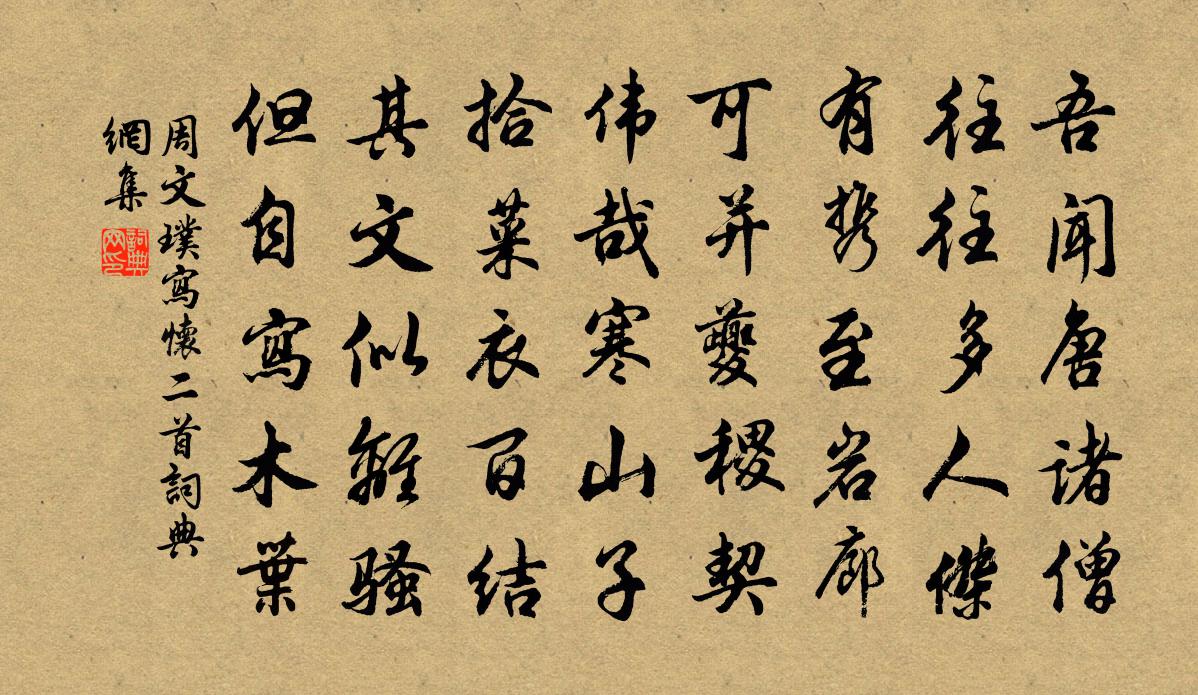 吾闻唐诸僧
往往多人傑
有携至岩廊
可并夔稷契
伟哉寒山子
拾菜衣百结
其文似離骚
但自寫木葉
周文璞寫懷二首詞典
網集
詞典網印